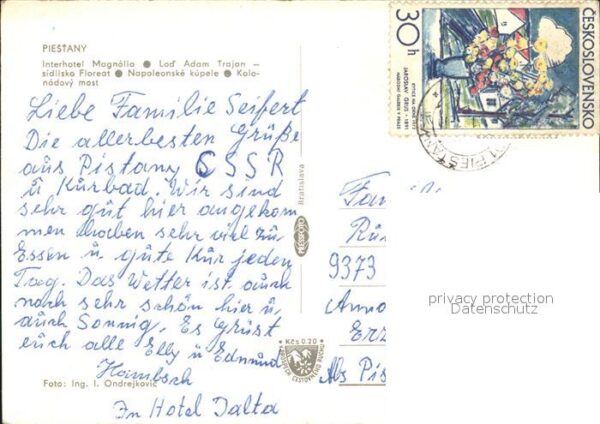 PIEŠŤANY
Interhotel Magnólia ● Loď Adam Trajan –
sídlisko Floreat ● Napoleonské kúpele ● Kolo-
nádový most
Liebe Familie Seifert
Die allerbesten Grüße
aus Pistany ČSSR
u Kurbad. Wir sind
sehr gut hier angekom
men haben sehr viel zu
Essen u gute Kur jeden
Tag. Das Wetter ist auch
noch sehr schön hier u,
auch Sonnig. Es Grüst
euch alle Elly u Edmund
Hambsch
In Hotel Jalta
Foto: Ing. I. Ondrejkovič
Bratislava
PRESSFOTO
Kčs 0,20
CESTOVNÉHO RUCHU
30h
ČESKOSLOVENSKO
JAROSLAV GRUS - 1891
KYTICE NA OKNĚ
NÁRODNÍ GALERIE V PRAZE
PIEŠŤANY
Fam
9373
Anna
Erz
Abs Pis
privacy protection
Datenschutz